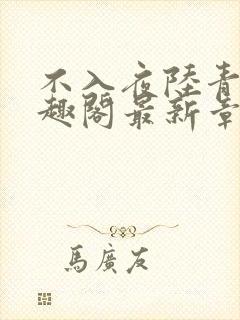 不入夜陸青
趣閣最新章
馬廣友